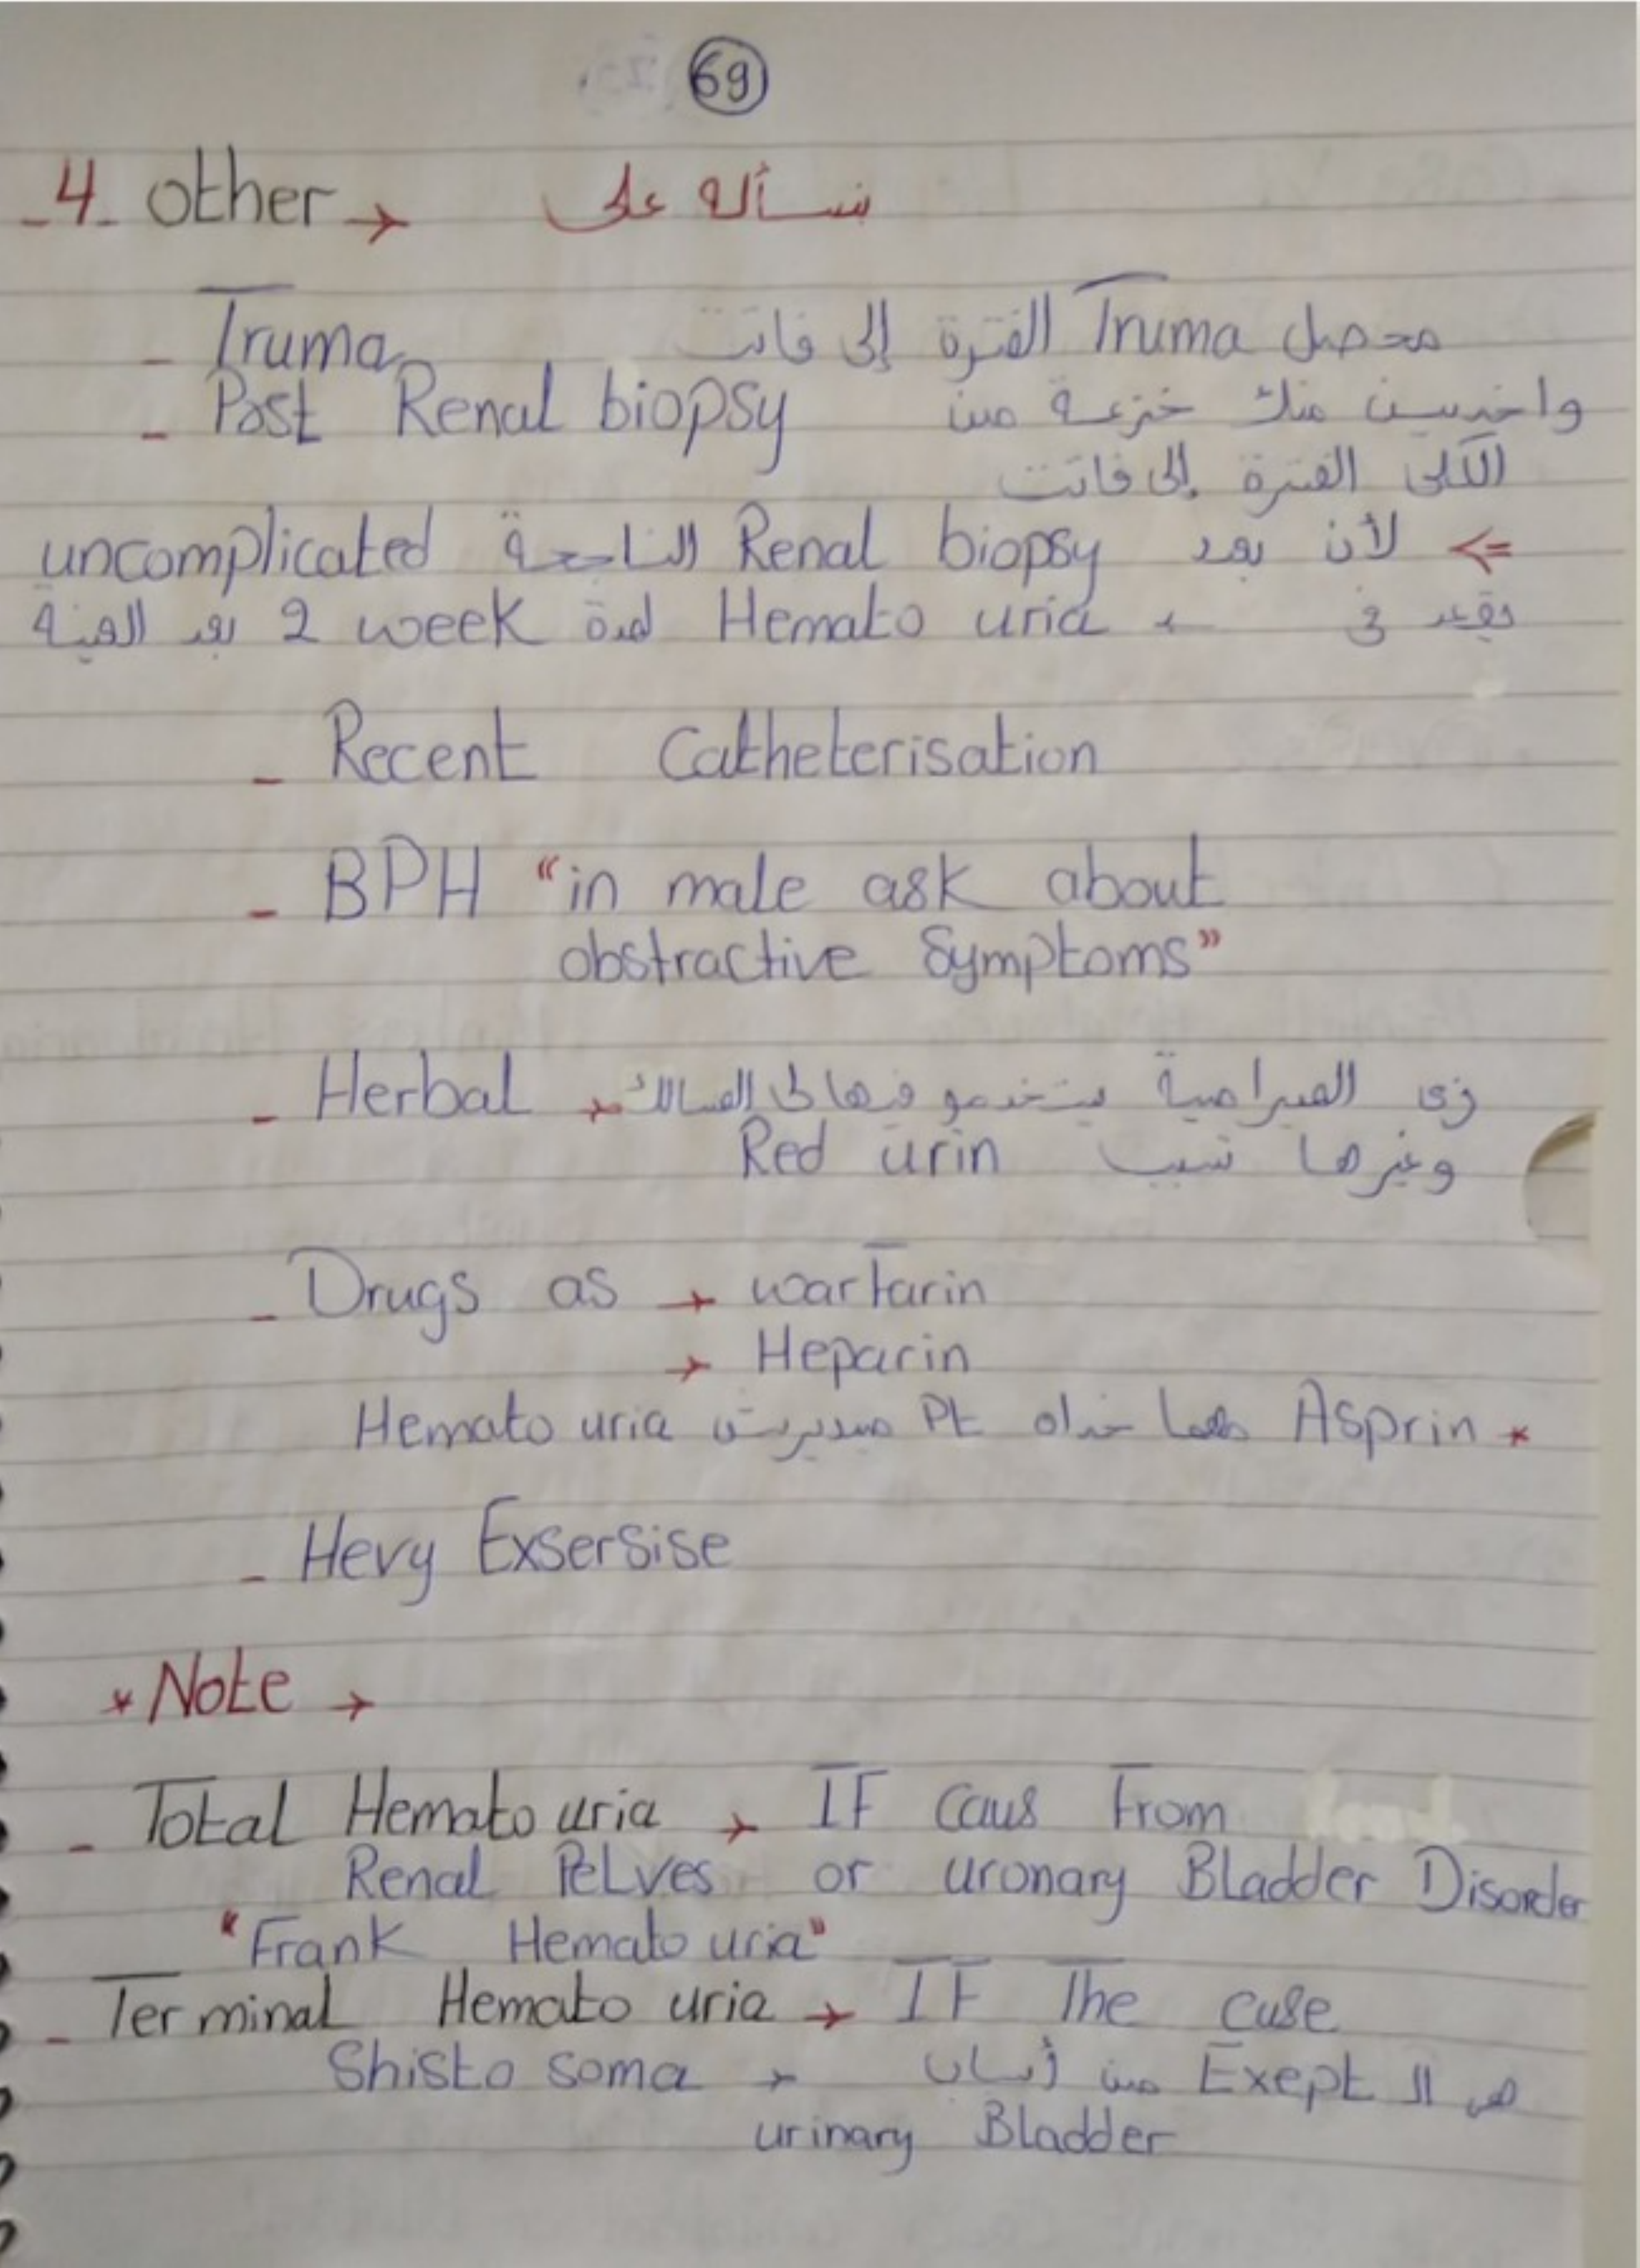 69
-4- other → بنسأله على
- Truma محصل Truma الفترة إلى فاتت
- Post Renal biopsy واخديين منك خزعة من
الكلى الفترة إلى فاتت
<= لأن بعد Renal biopsy الناجحة uncomplicated
بقعد في ← Hemato uria لمدة 2 week بعد العينة
- Recent Catheterisation
- BPH "in male ask about
obstractive Symptoms"
- Herbal → زى الصبراصية يستخدمو فيها لى المسالك
وغيرها تسبب Red urin
- Drugs as → warfarin
→ Heparin
* Asprin مهما خداه Pt مبديريش Hemato uria
- Hevy Exsersise
* Note →
- Total Hemato uria → IF Caus From
Renal PeLves or uronary Bladder Disorder
"Frank Hemato uria"
- Terminal Hemato uria → IF The cuse
Shisto soma → هى ال Exept من أسباب
urinary Bladder